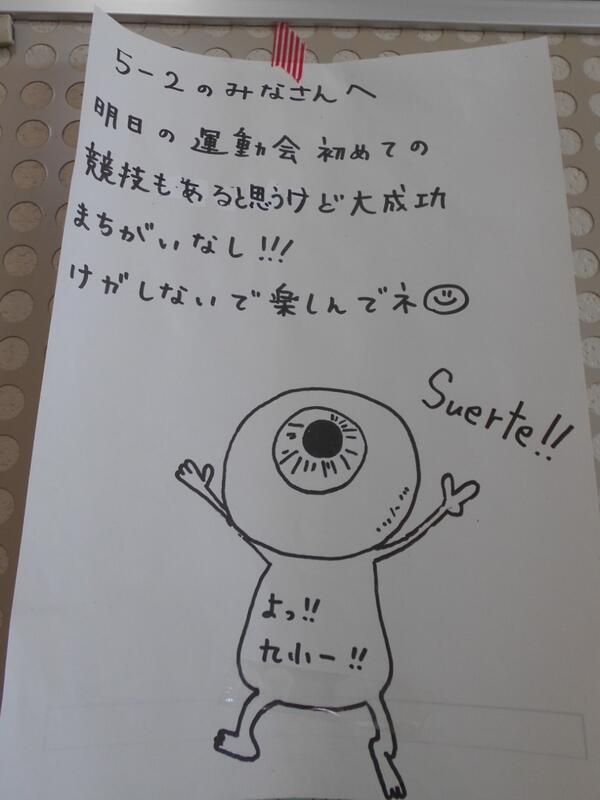 5-2のみなさんへ
明日の運動会初めての
競技もあると思うけど大成功
まちがいなし!!!
けがしないで楽しんでネ☺
Suerte!!
よっ!!
九小一!!